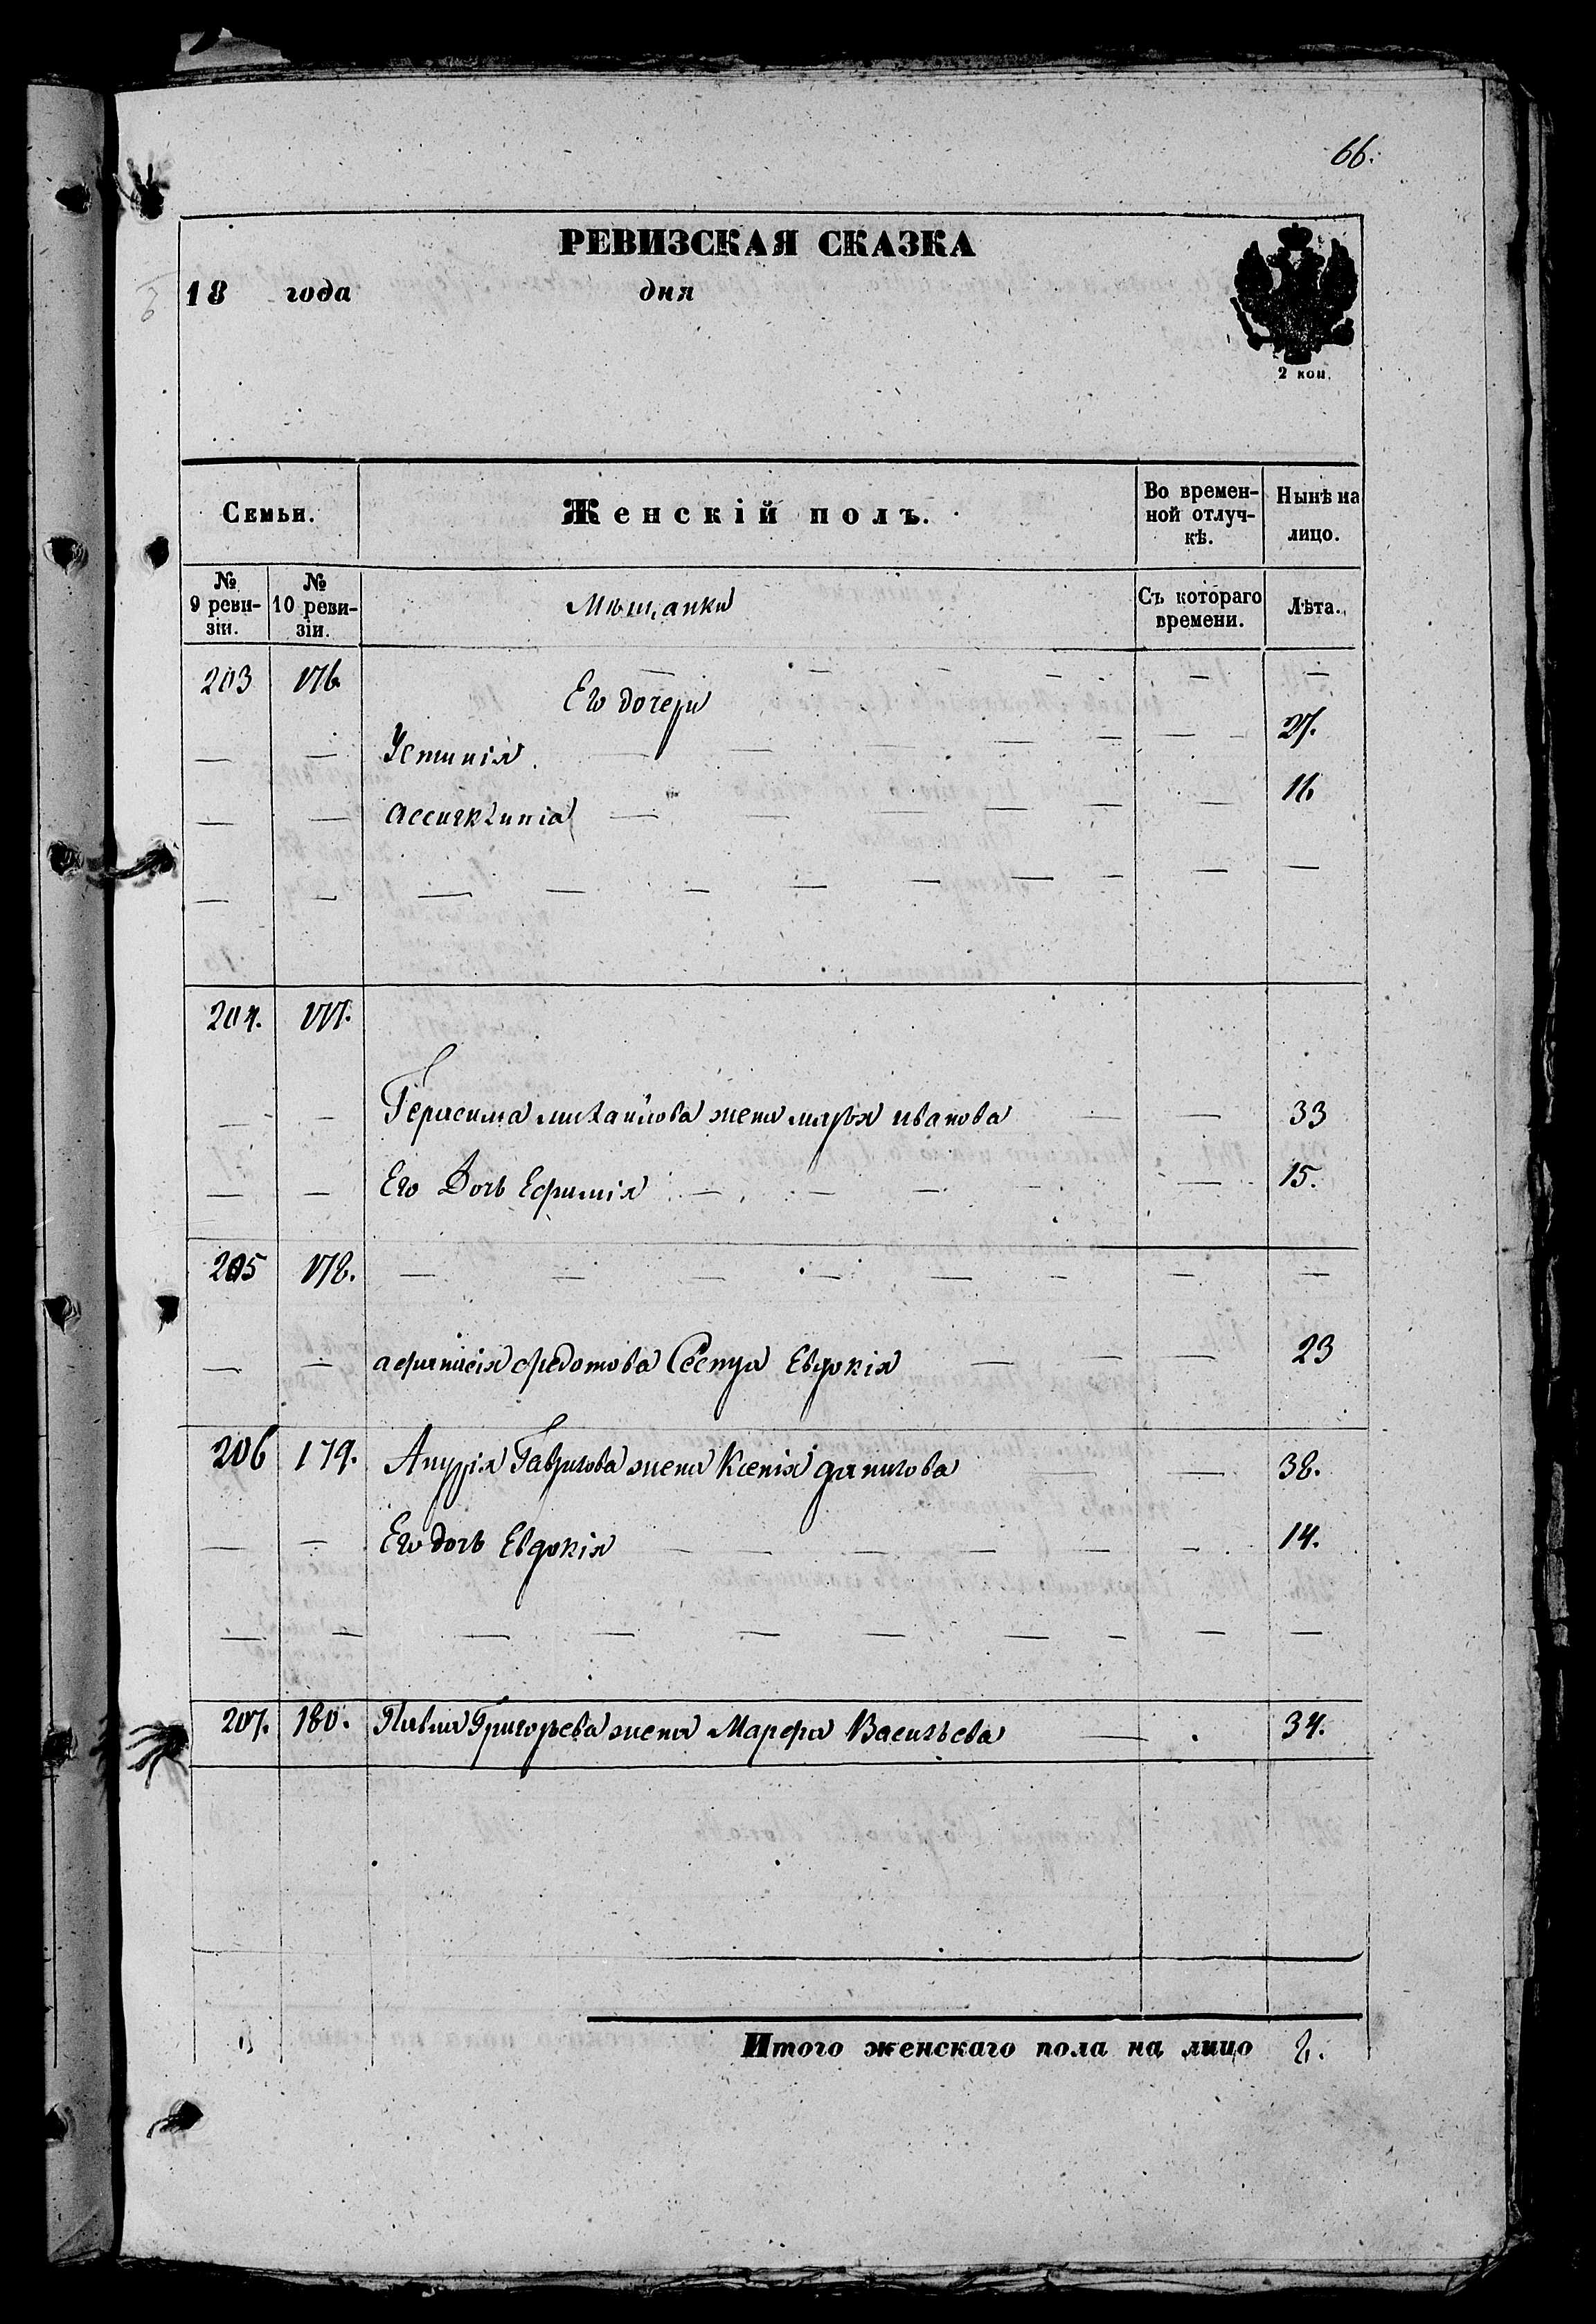 66.
РЕВИЗСКАЯ СКАЗКА
18 года дня
2 коп.
Семьи. Женскій полъ. Во времен-ной отлуч-кѣ. Нынѣ на лицо.
№ 9 реви-зіи. № 10 реви-зіи. Мѣщанки Съ котораго времени. Лѣта.
203 176 — — — — — —
Его дочери
— — Устинія — — — — — — 27.
— — — — — — — — 16
— — — — — — — — — — —
204. 177.
— — Герасима михайлова жена марья иванова — — 33
— — Его Дочь Ефимія — — — — 15.
205 178. — — — — — — — —
— — афанасія федотова Сестра Евдокія — — — 23
206 179. Андрія Гаврилова жена Ксенія данилова — — 38.
— — Его дочь Евдокія — — — — — — 14.
— — — — — — — — — — —
207. 180. Павла Григорьева жена Марфа Васильева — 34.
Итого женскаго пола на лицо 8.